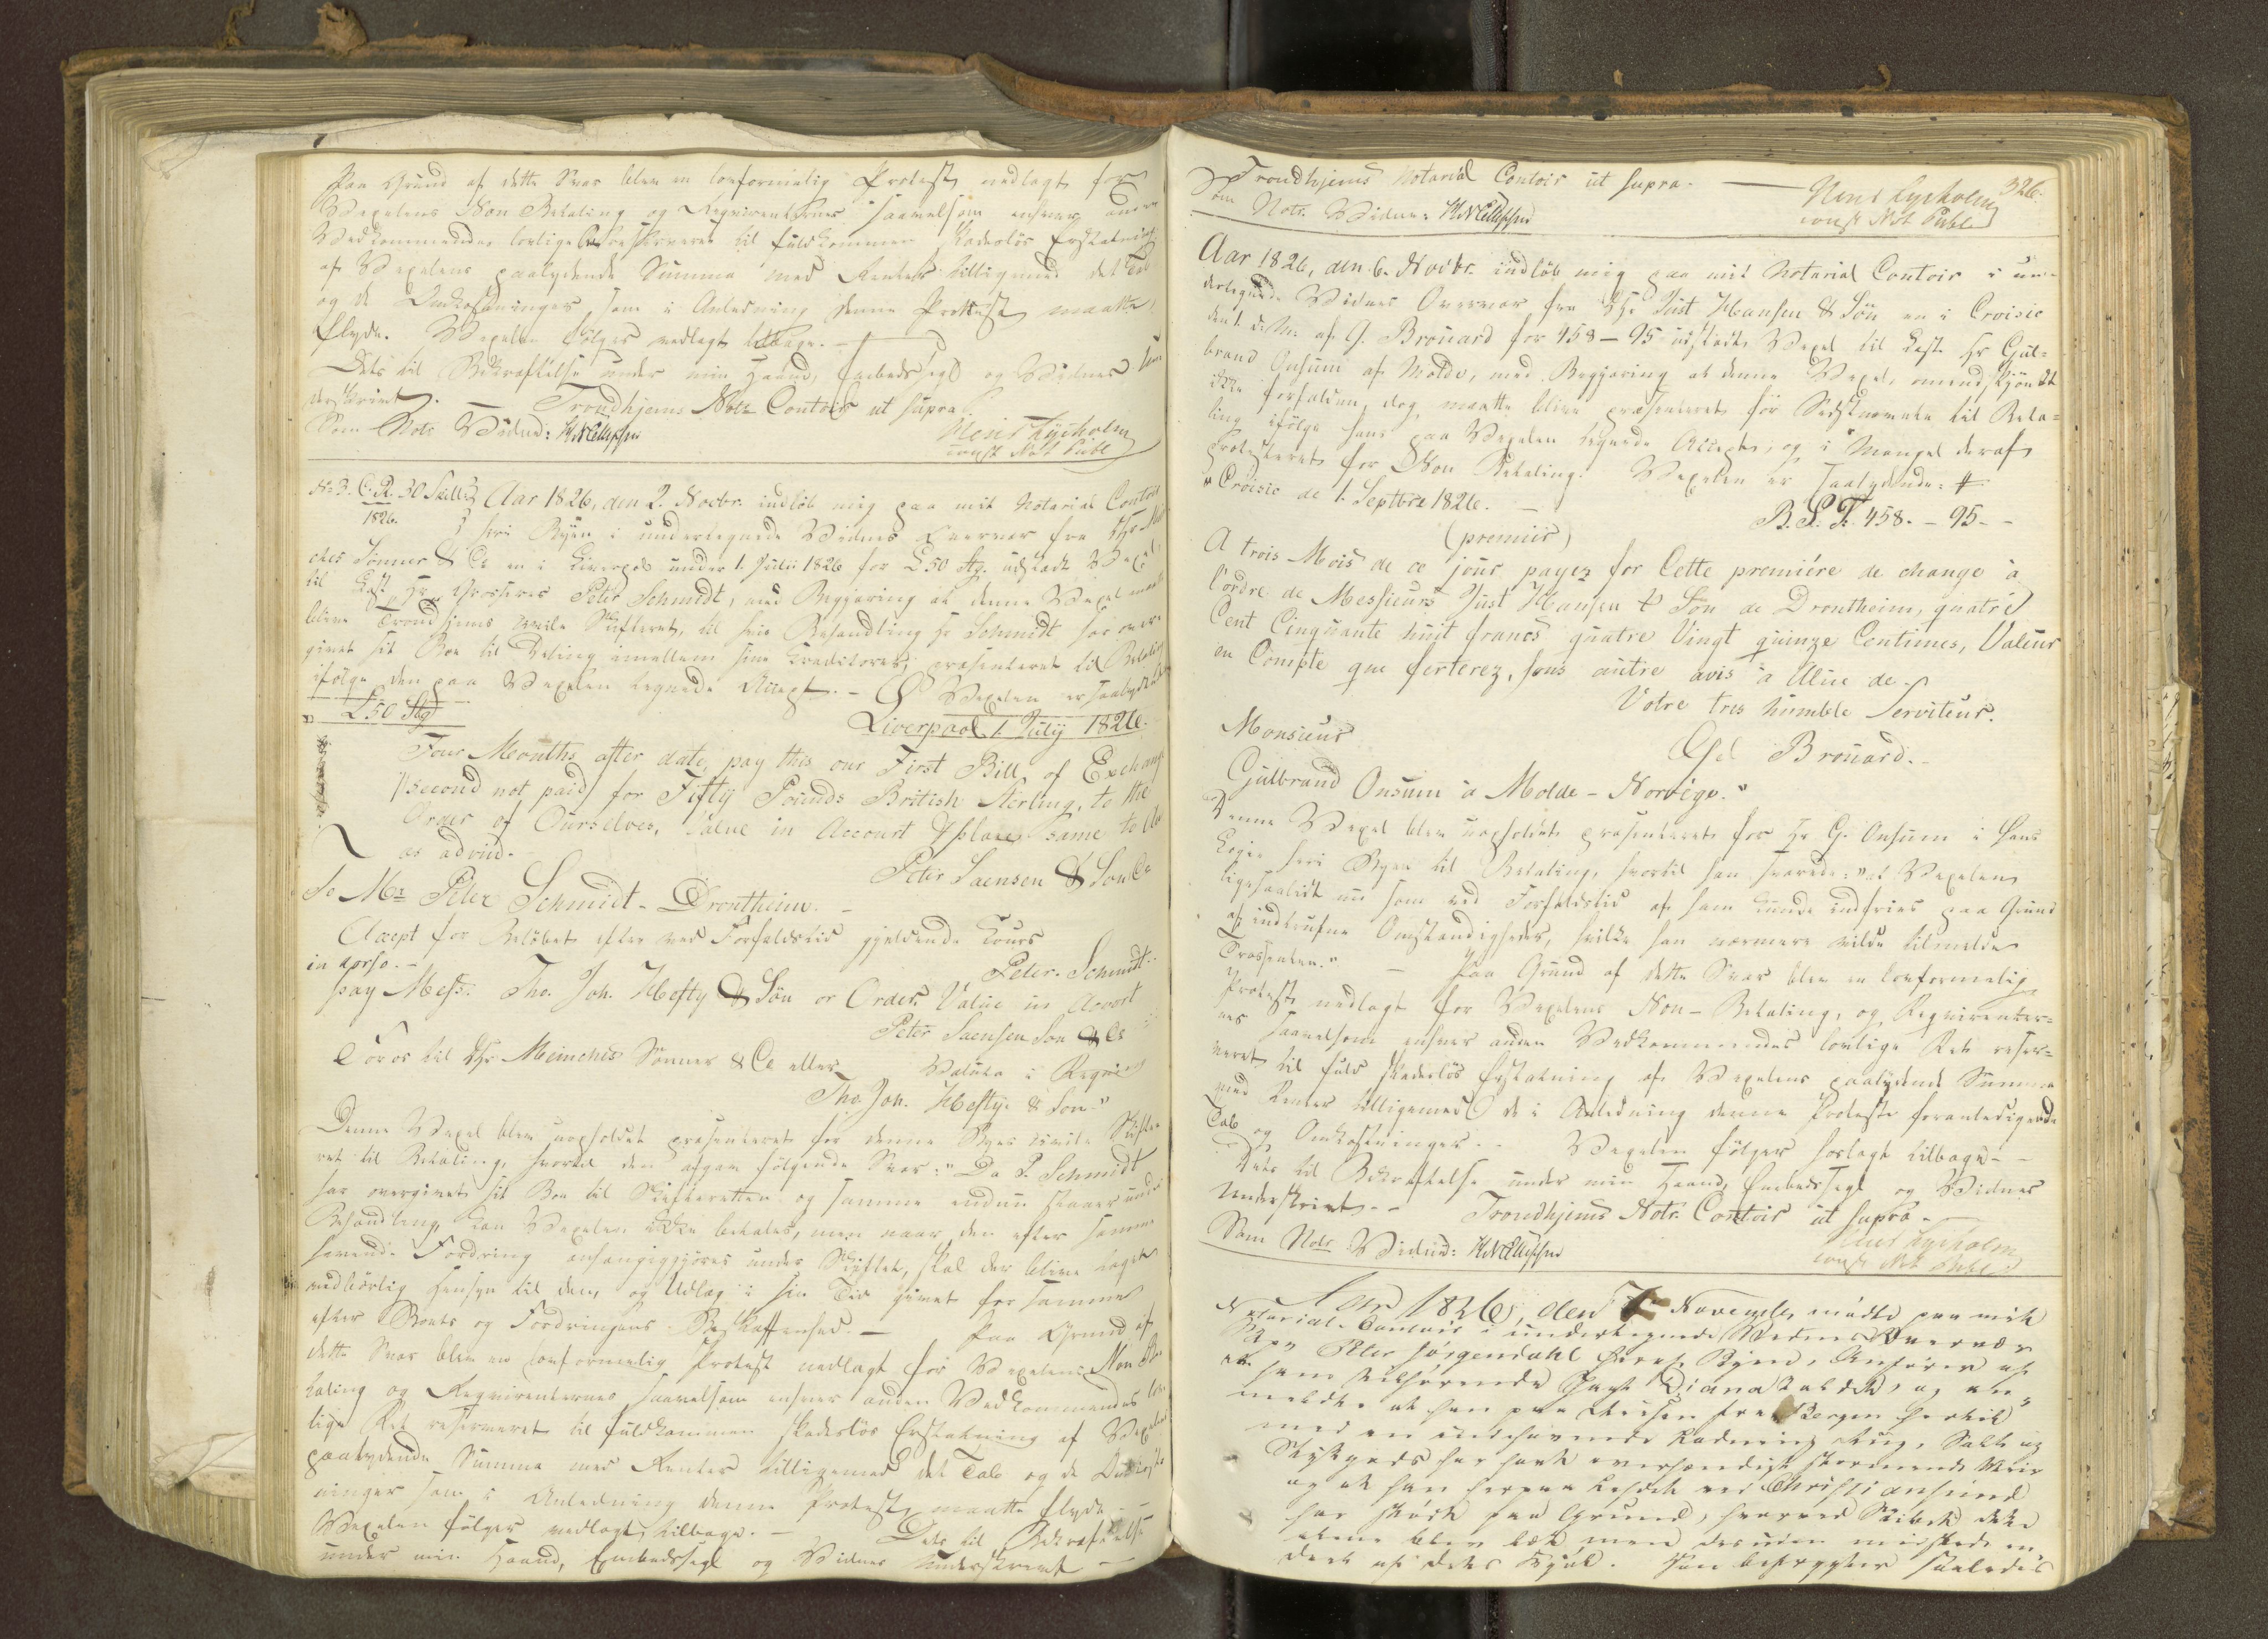 Paa Grund af dette Svar blev en conformelig Protest nedlagt for
Wexelens Non Betaling og Reqvirenternes saavelsom enhver anden
Vedkommendes lovlige Ret reserveret til fuldkommen skadeslös Erstatning
af Wexelens paalydende Summa med Renter tilligemed det Tab
og de Omkostninger som i Anledning denne Protest maatte
flyde. Wexelen fölger vedlagt tilbage. –
Dets til Bekræftelse under min Haand, Embedssegl og Vidnes Un
derskrivt. – Trondhjems Notr. Contoir ut supra.
Som Notr. Vidne: Mens Lysholm
const Not Publ
No 3. C. R. 30 Skill. Aar 1826, den 2. Novbr. indlöb mig paa mit Notarial Contoir
1826. her i Byen i undertegnede Vidnes Overvær fra Hr. Mein
ches Sönner & Co en i Liverpol under 1. Julii 1826 for £50 Stg. udstædt Wexel
til Hr. Grosserer Peter Schmidt, med Begjæring at denne Wexel maatte
blive Trondhjems civile Skifteret, til hvis Behandling Hr Schmidt har over-
givet sit Boe til Deling imellem sine Creditorer, præsenteret til Betaling
ifölge den paa Wexelen tegnede Accept. – Wexelen er saalydende
" £50 Stg Liverpool 1. July 1826.
Four Months after date, pay this our First Bill of Exchange
/second not paid/ for Fifty Pounds British Sterling, to the
Order of Ourselves, Value in Account & place same to do
as advid. –
Peter Jaensen & Son Co
To Mr. Peter Schmidt – Drontheim. –
Accept for Belöbet efter ved Forfaldstid gjeldende Cours
Peter Schmidt.
in dorso. –
pay Mess: Tho. Joh. Heftye & Sön or Order Value in Accort
Peter Jaensen Son & Co
For os til Hr. Meinches Sönner & Co eller Valuta i Regning
Tho. Joh. Heftye & Son."
Denne Wexel blev uopholdet præsenteret for denne Byes civile Skifte
ret til Betaling, hvortil den afgav fölgende Svar: "Da P. Schmidt
har overgivet sit Boe til Skifteretten og samme endnu staaer under
Behandling, kan Wexelen ikke betales, men naar den efter samme
havende Fordring anhængiggjöres under Skiftet, skal der blive taget
vedbörlig Hensyn til den, og Udlæg i sin Tid givet for samme
efter Boets og Fordringens Beskaffenhed. – Paa Grund af
dette Svar blev en conformelig Protest nedlagt for Wexelens Non Be
taling og Reqvirenternes saavelsom enhver anden Vedkommendes lov
lige Ret reserveret til fuldkommen skadeslös Erstatning af Wexelens
paalydende Summa med Renter tilligemed det Tab og de Omkost
ninger som i Anledning denne Protest maatte flyde. –
Wexelen fölger vedlagt tilbage. – Dets til Bekræftelse
under min Haand, Embedssegl og Vidnes Underskrivt –
Trondhjems Notarial Contoir ut supra. – Mens Lysholm 326.
Som Notr. Vidne: const Not Publ
Aar 1826, den 6. Novbr. indlöb mig paa mit Notarial Contoir i un-
dertegnede Vidnes Overvær fra Hr. Just Hansen & Sön en i Croisic
den 1. d. M. af G. Brouard for 458–95 udstædt Wexel til Hr Gul-
brand Onsum af Molde, med Begjæring at denne Wexel, omendskjöndt
ikke forfalden, dog maatte blive præsenteret för til Beta-
ling ifölge hans paa Wexelen tegnede Accept, og i Mangel deraf
Protesteret for Non Betaling. Wexelen er saalydende:
"Croisic de 1. Septbre 1826. – B. P. F. 458. – 95. –
(premiir)
A trois Mois de ce jour payez for Cette premiére de change à
l'ordre de Messieurs Just Hansen & Son de Drontheim, quatre
Cent Cinquante huit francs quatre Vingt quinze Centimes, Valeur
en Compte que ferterez, sans autre avis à Mine de –
Votre tres humble Serviteur.
Monsieur Brouard. –
Gulbrand Onsum à Molde – Norvige."
Denne Wexel blev uopholdet præsenteret for Hr G. Onsum i hans
Logie her i Byen til Betaling, hvortil han svarede: "at Wexelen
ligesaalidt nu som ved Forfaldstid af ham kunde indfries paa Grund
af indtrufne Omstændigheder, hvilke han nærmere vilde tilmelde
Trassenten." – Paa Grund af dette Svar blev en conformelig
Protest nedlagt for Wexelens Non-Betaling, og Reqvirenter-
nes saavelsom enhver anden Vedkommendes lovlige Ret reser-
veret til fuld skadeslös Erstatning af Wexelens paalydende Summa
med Renter tilligemed de i Anledning denne Protest foranledigede
Tab og Omkostninger. – Wexelen fölger herlagt tilbage. –
Dets til Bekræftelse under min Haand, Embedssegl og Vidnes
Underskrivt. – Trondhjems Notr. Contoir ut supra. –
Som Notr Vidne: Mens Lysholm
const Not Publ.
Aar 1826, den 7. November, mödte paa mit
Notarial-Contoir i undertegnede Vidnes Overvær
Peter Jörgendahl Byen, Anförer af
ham tilhörende Jagt Diana kaldet, og an-
meldte at han paa Reisen fra Bergen hertil
med en indehavende Ladning Rug, Salt og
Stykgods har havt overhændigt stormende Veir
og at han herpaa Leden ved Christiansund
har stödt paa Grund, hvorved Skibet ikke
alene blev læk, men desuden mistede en
Deel af dets Kjöl. Han befrygter saaledes